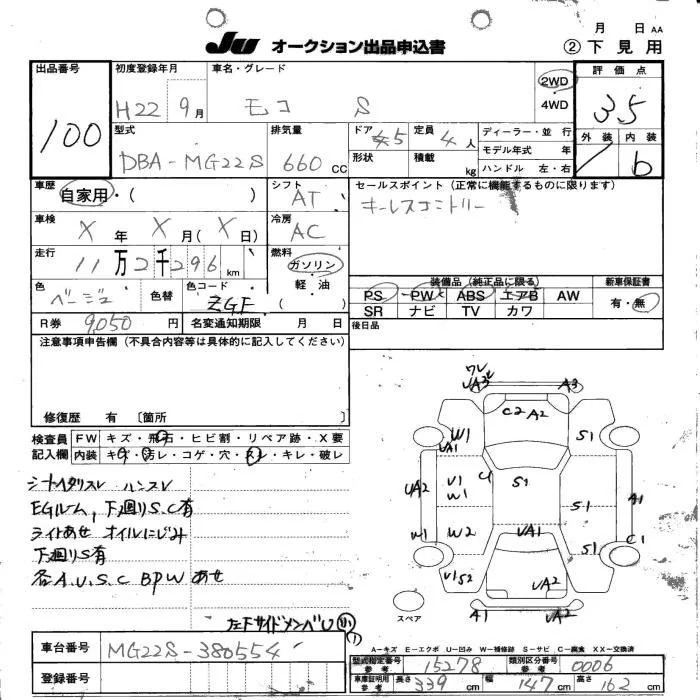 月 日 AA
Ju オークション出品申込書
② 下見用
出品番号
100
初度登録年月
H22 9月
車名・グレード
モコ S
2WD
4WD
評価点
3.5
外装 内装
b
型式
DBA-MG22S
排気量
660 CC
ドア 5
形状
定員 4人
積載 kg
ディーラー・並行
モデル年式 年
ハンドル 左・右
車歴
自家用・( )
シフト
AT
セールスポイント (正常に機能するものに限ります)
キーレスエントリー
車検
X年 X月(X日)
冷房
AC
走行
11万2千296km
燃料
ガソリン
軽油
( )
色
ベージュ
色替
色コード
ZGF
装備品 (純正品に限る)
PS PW ABS エアB AW
SR ナビ TV カワ
新車保証書
有・無
R券 9,050円
名変通知期限 月 日
後日品
注意事項申告欄 (不具合内容等は具体的に記入してください)
修復歴 有 [箇所 ]
検査員記入欄
FW キズ・飛石・ヒビ割・リペア跡・X要
内装 キズ・汚レ・コゲ・穴・スレ・キレ・破レ
シートヘタリスレ ハンスレ
EGルーム、下廻りS.C有
ライトあせ オイルにじみ
下廻りS有
各A.U.S.C BPWあせ
左下サイドメンバU
ワレ
UA3 A3
C2 A2
W1 UA1 S1
U1 W1 C1 S1
UA2 S1 A1
W1 W2 UA1 C1
S1
U1S2 UA2
A1 UA2
スペア
A-キズ E-エクボ U-凹み W-補修跡 S-サビ C-腐食 XX-交換済
車台番号 MG22S-380554
登録番号
型式指定番号 参考 15278
類別区分番号 参考 0006
車庫証明用 参考 長さ 339cm 幅 147cm 高さ 162cm